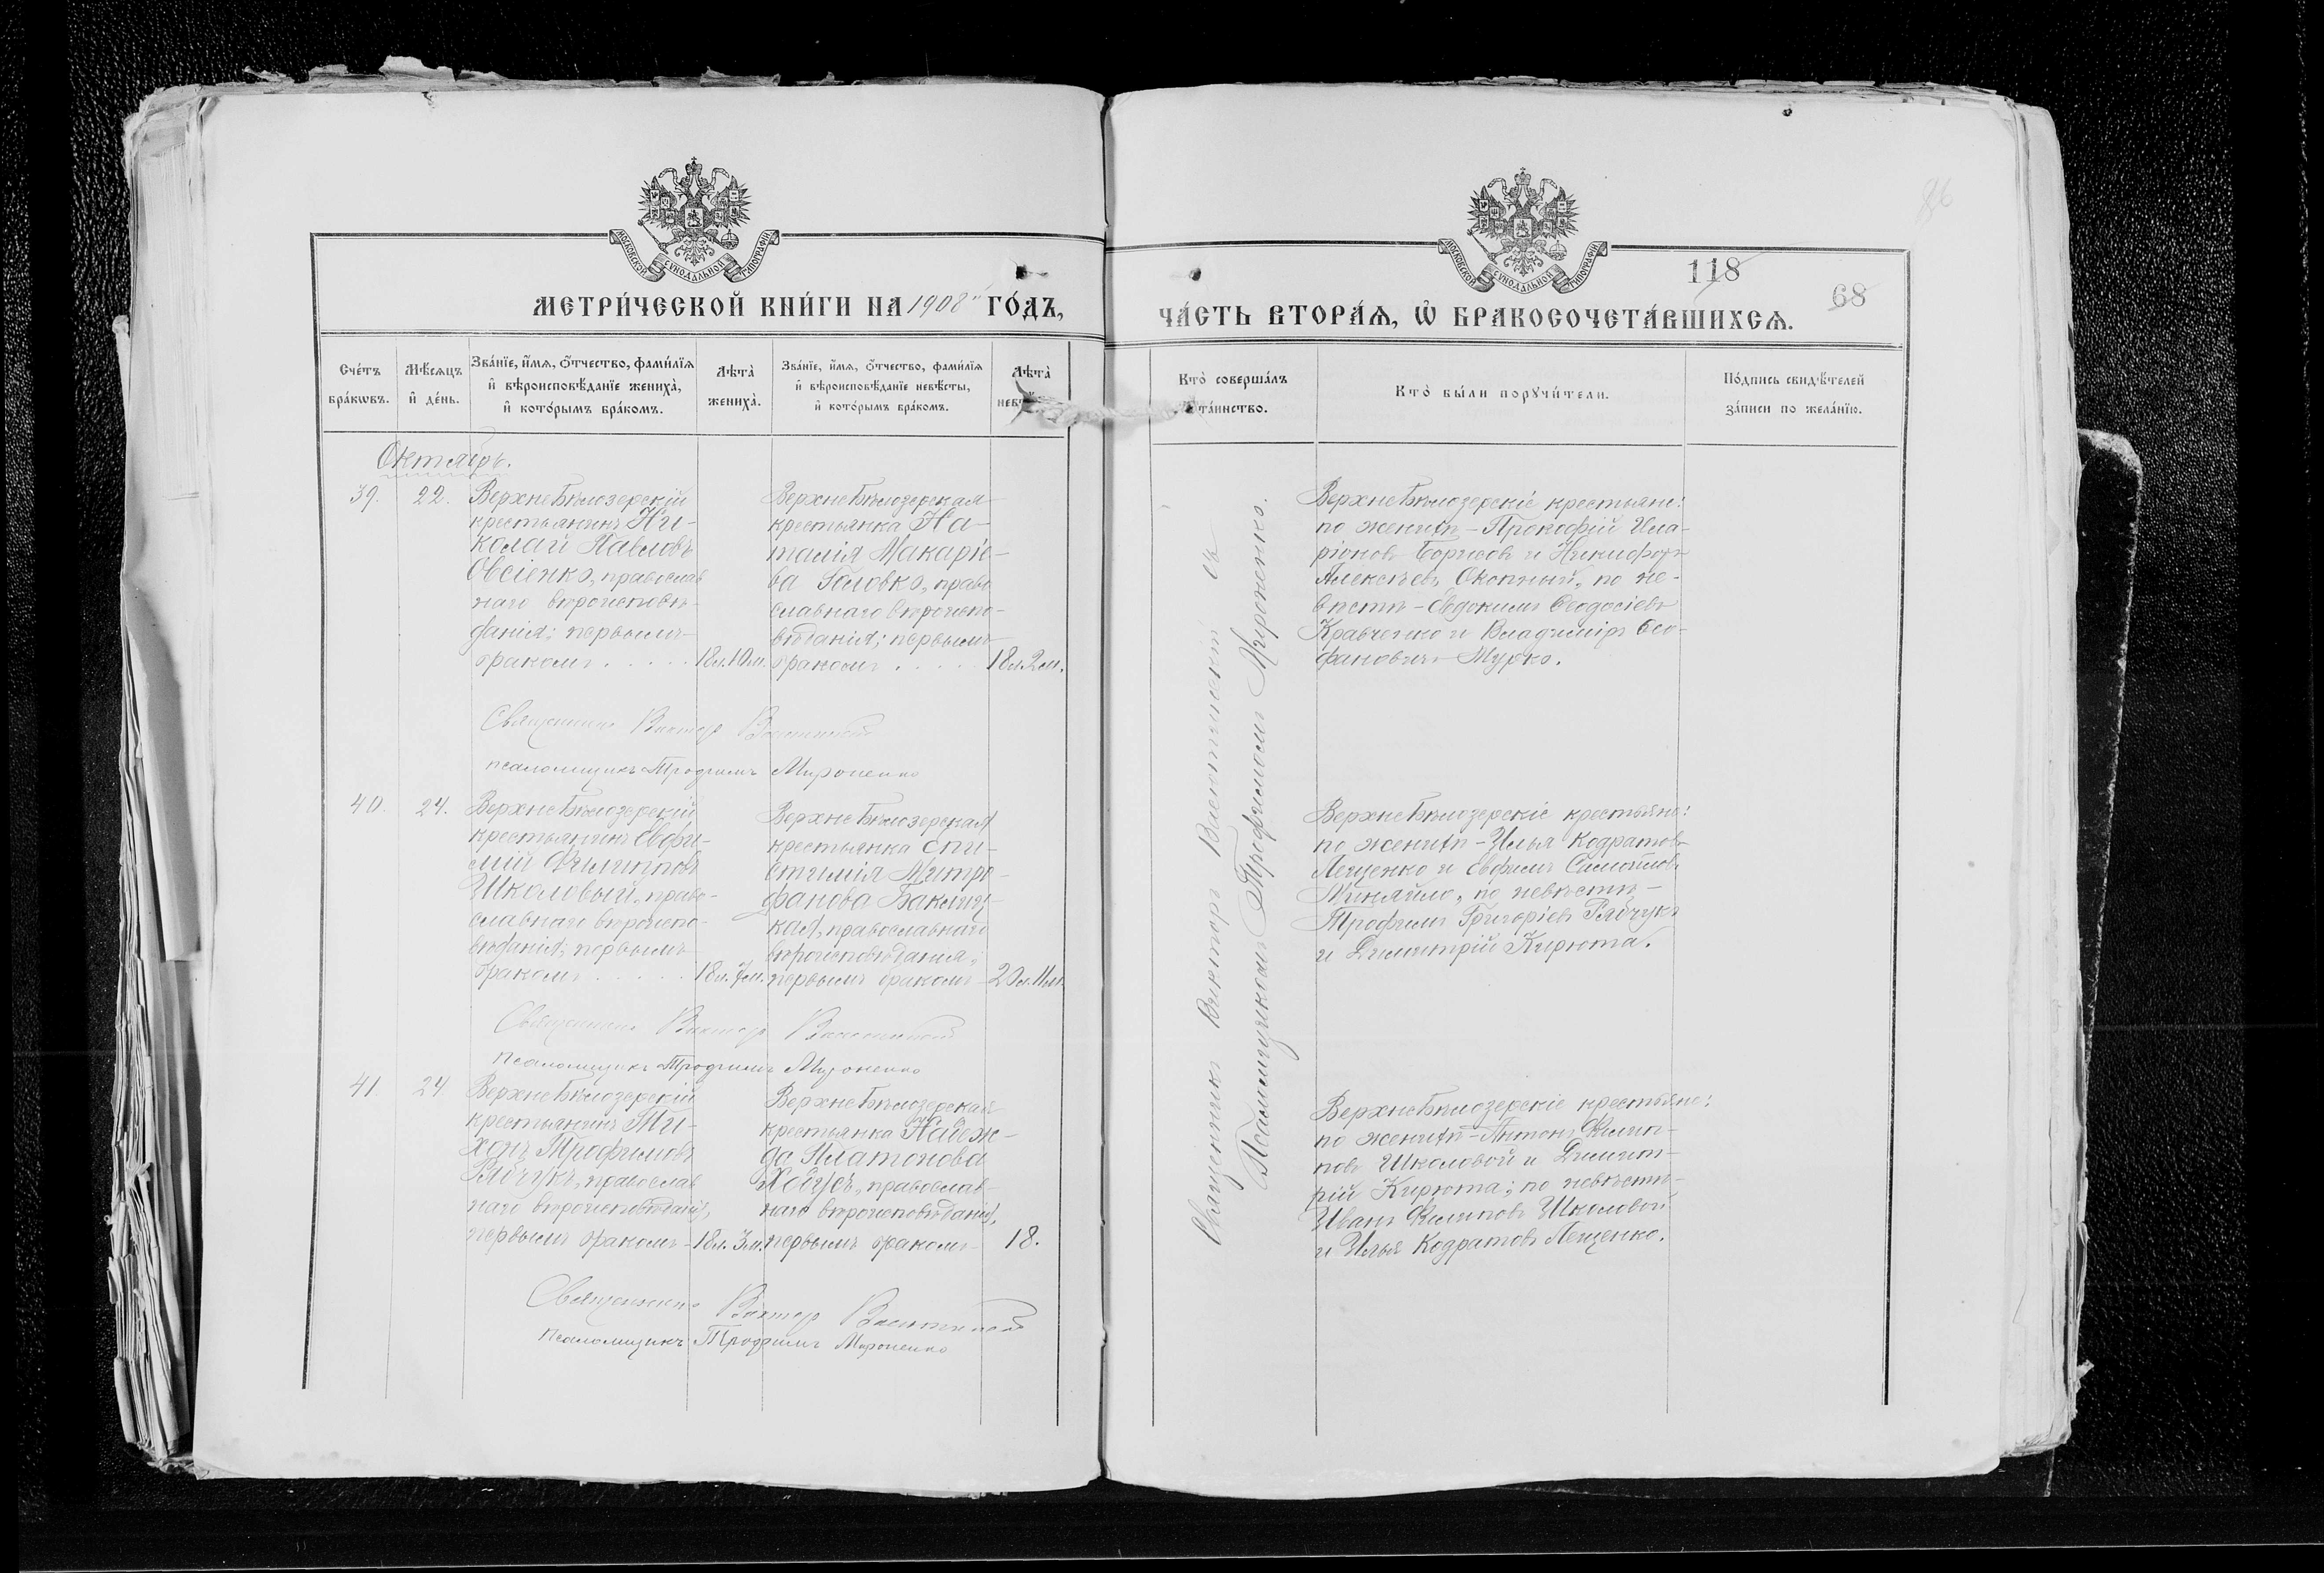 МОСКОВСКОЙ СУНОДАЛЬНОЙ ТИПОГРАФІИ
МЕТРИ́ЧЕСКОЙ КНИ́ГИ НА 1908 ГО́ДЪ,
Сче́тъ бра́кωвъ.
Мѣ́сяцъ и҆ де́нь.
Зва́нїе, и҆́мя, ѻ҆́тчество, фами́лїя
и҆ вѣроисповѣ́данїе жениха̀,
и҆ кото́рымъ бра́комъ.
Лѣта̀ жениха̀.
Зва́нїе, и҆́мя, ѻ҆́тчество, фами́лїя
и҆ вѣроисповѣ́данїе невѣ́сты,
и҆ кото́рымъ бра́комъ.
Лѣта̀
Октябрь.
39.
22.
ВерхнеБѣлозерскій
крестьянинъ Ни-
колай Павловъ
Овсіенко, православ
наго вѣроисповѣ-
данія; первымъ
бракомъ . . . . .
18л.10м.
ВерхнеБѣлозерская
крестьянка На-
талія Макаріе-
ва Головко, право
славнаго вѣроиспо-
вѣданія; первымъ
бракомъ . . . . .
18л.2м.
Священникъ Викторъ
псаломщикъ Трофимъ Мироненко
40.
24.
ВерхнеБѣлозерскій
крестьянинъ Евфи-
мій Филипповъ
Школовый, право-
славнаго вѣроиспо-
вѣданія; первымъ
бракомъ . . . . .
18л.7м.
ВерхнеБѣлозерская
крестьянка Епи-
стимія Митро-
фанова Баклиц-
кая, православнаго
вѣроисповѣданія;
первымъ бракомъ
20л.11м.
Священникъ Викторъ
псаломщикъ Трофимъ Мироненко
41
24
ВерхнеБѣлозерскій
крестьянинъ Ти-
хонъ Трофимовъ
Рябчукъ, православ
наго вѣроисповѣданія,
первымъ бракомъ
18л.3м.
ВерхнеБѣлозерская
крестьянка Надеж-
да Платонова
православ-
наго вѣроисповѣданія,
первымъ бракомъ
18.
Священникъ Викторъ
псаломщикъ Трофимъ Мироненко
86
МОСКОВСКОЙ СУНОДАЛЬНОЙ ТИПОГРАФІИ
118
68
ЧА́СТЬ ВТОРА́Я, Ѡ҆ БРАКОСОЧЕТА́ВШИХСЯ.
Кто̀ соверша́лъ
та́инство.
Кто̀ бы́ли порꙋчи́тели.
По́дпись свидѣ́телей
за́писи по жела́нїю.
Священникъ Викторъ съ
Псаломщикомъ Трофимомъ Мироненко.
ВерхнеБѣлозерскіе крестьяне:
по женихѣ - Прокофій Ила-
ріоновъ Борисовъ и Никифоръ
Алексѣевъ Окопный, по не-
вѣстѣ - Евдокимъ Ѳеодосіевъ
Кравченко и Владиміръ Ѳео-
фановичъ Мурко.
ВерхнеБѣлозерскіе крестьяне:
по женихѣ - Илья Кодратовъ
Лещенко и Евфимъ Самойловъ
Миняйло, по невѣстѣ -
Трофимъ Григоріевъ Рябчукъ
и Димитрій Кирюта.
ВерхнеБѣлозерскіе крестьяне:
по женихѣ - Антонъ Филип-
повъ Школовой и Димит-
рій Кирюта; по невѣстѣ -
Иванъ Филиповъ Школовой
и Илья Кодратовъ Лещенко.